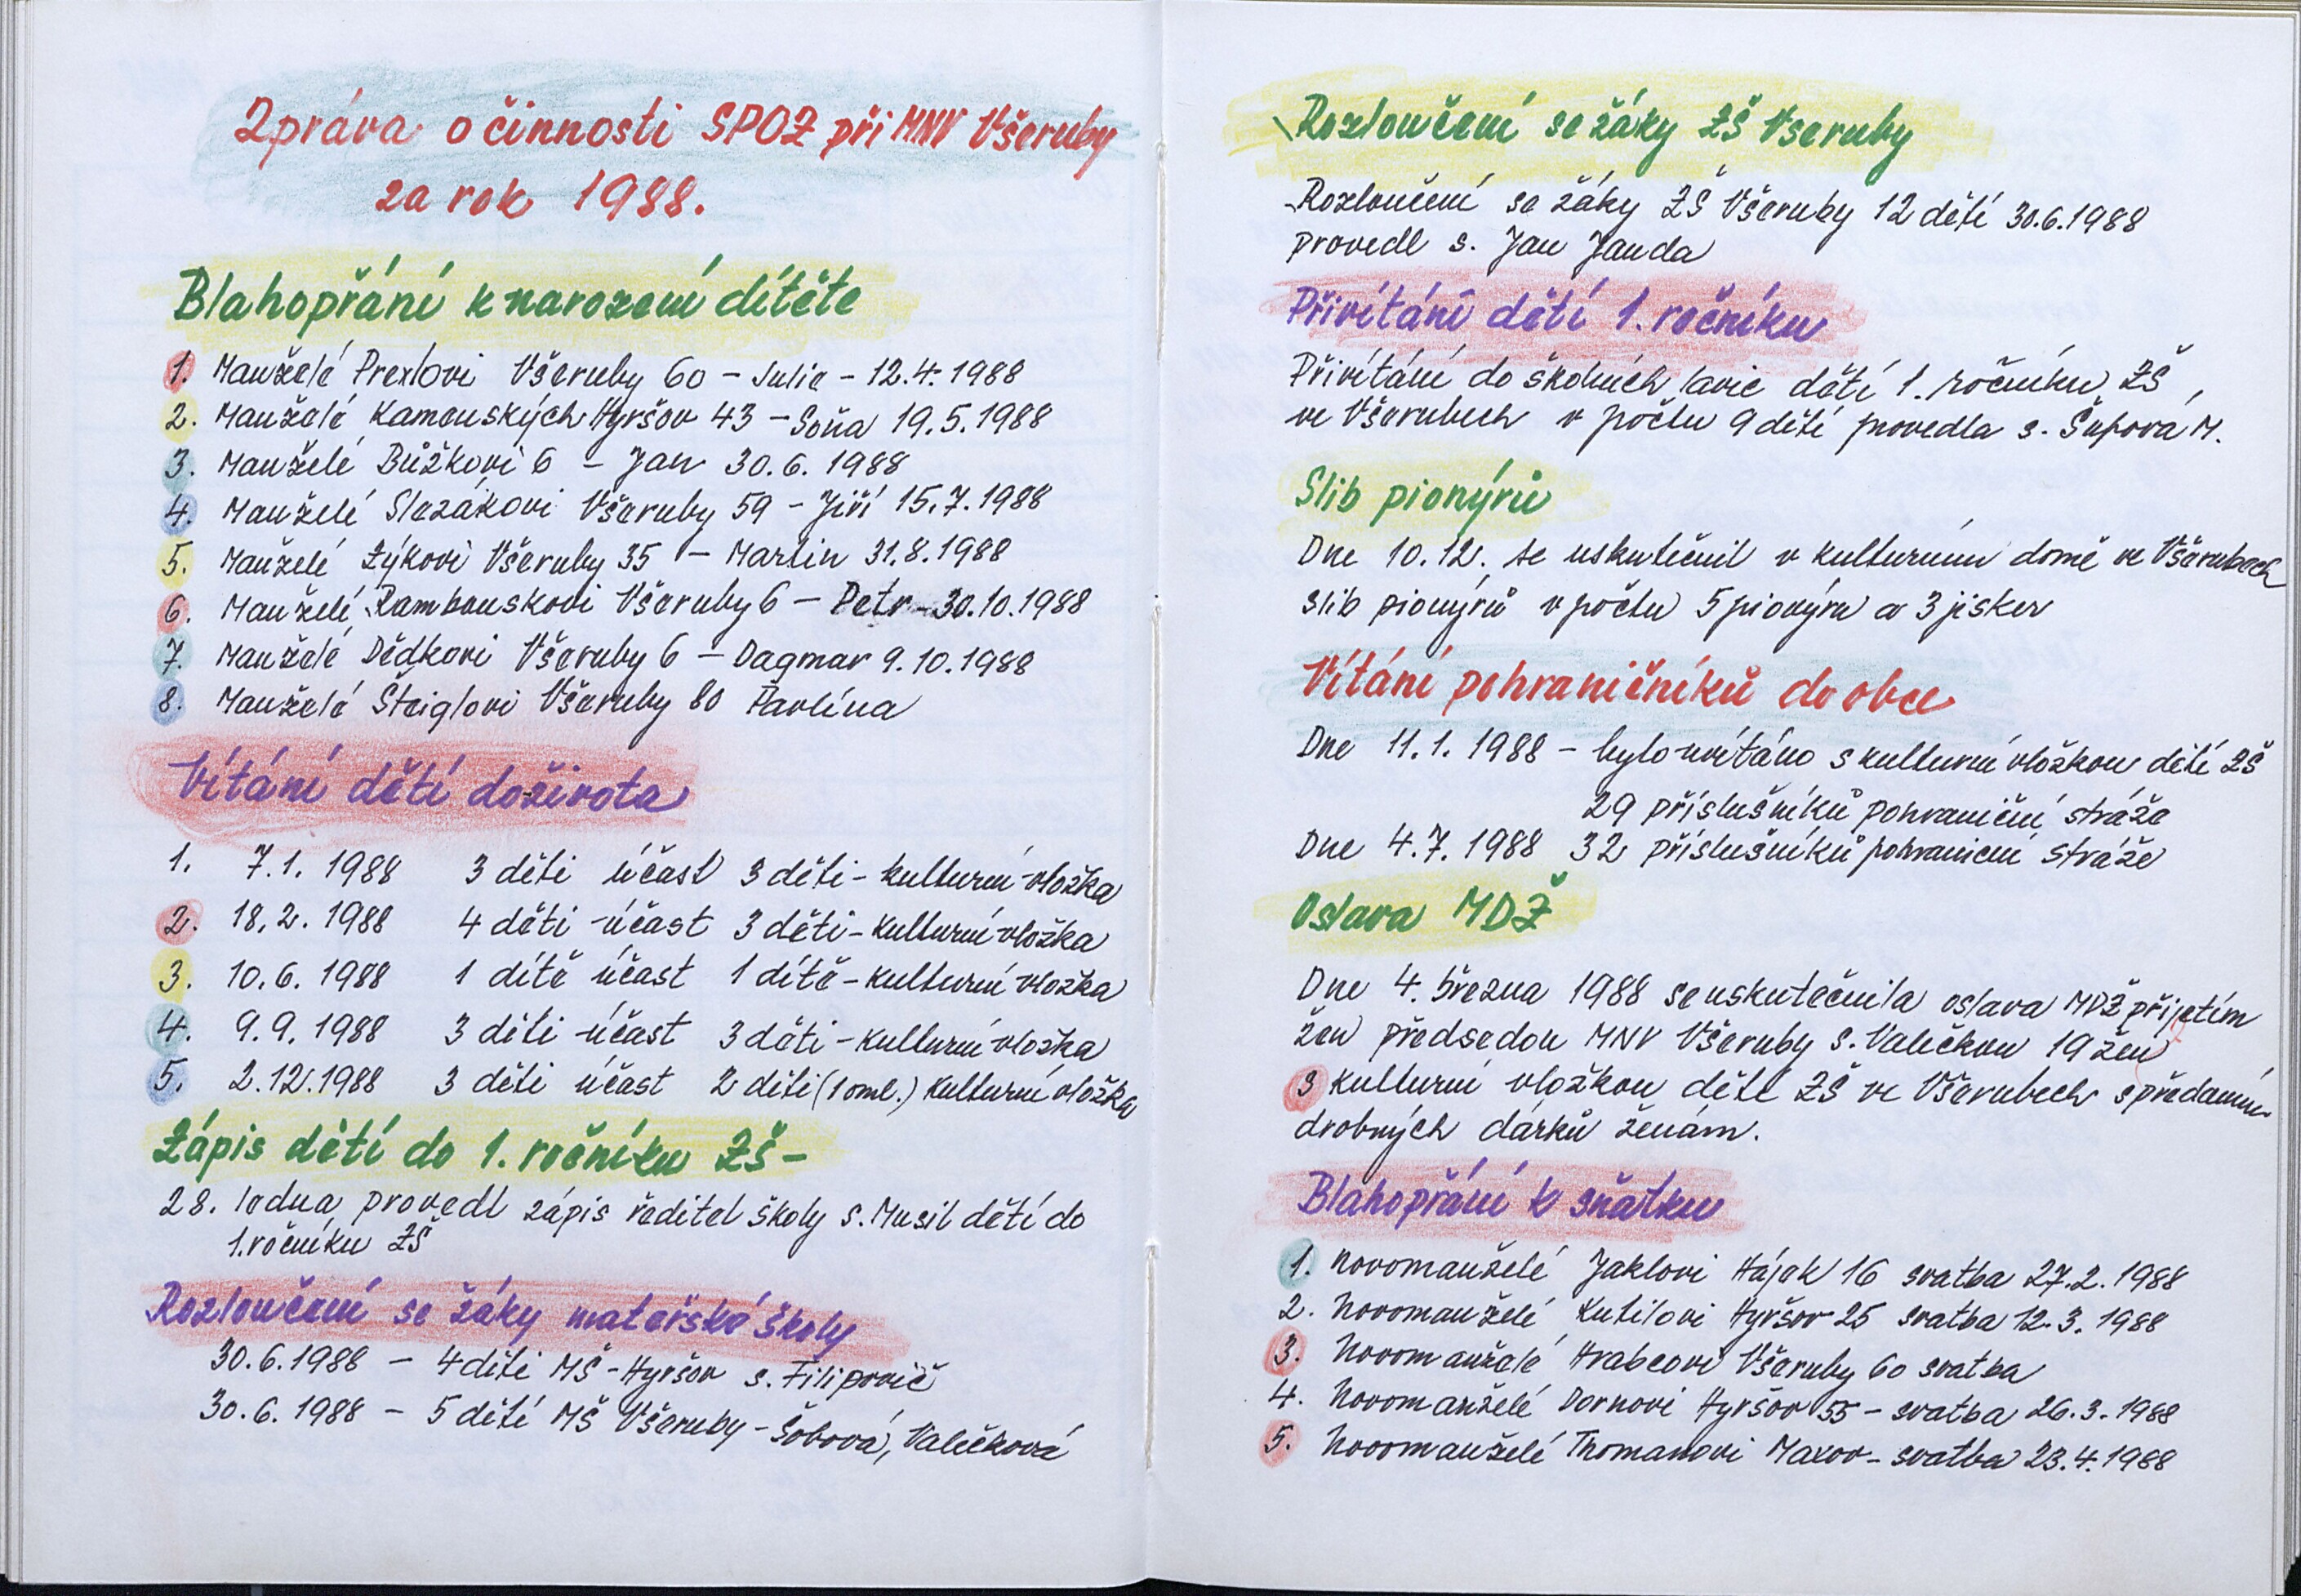 Zpráva o činnosti SPOZ při MNV Všeruby
za rok 1988.
Blahopřání k narození dítěte
1. Manželé Prexlovi Všeruby 60 – Julie – 12.4.1988
2. Manželé Kamenských Hyršov 43 – Soňa 19.5.1988
3. Manželé Bůžkovi 6 – Jan 30.6.1988
4. Manželé Slezákovi Všeruby 59 – Jiří 15.7.1988
5. Manželé Zýkovi Všeruby 35 – Martin 31.8.1988
6. Manželé Rambouskovi Všeruby 6 – Petr – 30.10.1988
7. Manželé Dědkovi Všeruby 6 – Dagmar 9.10.1988
8. Manželé Šteiglovi Všeruby 80 Pavlína
Vítání dětí do života
1. 7.1.1988 3 děti účast 3 děti – kulturní vložka
2. 18.2.1988 4 děti – účast 3 děti – kulturní vložka
3. 10.6.1988 1 dítě účast 1 dítě – kulturní vložka
4. 9.9.1988 3 děti – účast 3 děti – kulturní vložka
5. 2.12.1988 3 děti účast 2 děti (1 oml.) kulturní vložka
Zápis dětí do 1. ročníku ZŠ –
28. ledna provedl zápis ředitel školy s. Musil dětí do
1. ročníku ZŠ
Rozloučení se žáky mateřské školy
30.6.1988 – 4 děti MŠ – Hyršov s. Filipovič
30.6.1988 – 5 dětí MŠ Všeruby – Šobová, Valečková
Rozloučení se žáky ZŠ Vseruby
Rozloučení se žáky ZŠ Všeruby 12 dětí 30.6.1988
provedl s. Jan Janda
Přivítání dětí 1. ročníku
Přivítání do školních lavic dětí 1. ročníku ZŠ,
ve Všerubech v počtu 9 dětí provedla s. Šupová M.
Slib pionýrů
Dne 10.12. se uskutečnil v kulturním domě ve Všerubech
slib pionýrů v počtu 5 pionýrů a 3 jisker
Vítání pohraničníků do obce
Dne 11.1.1988 – bylo uvítáno s kulturní vložkou dětí ZŠ
29 příslušníků pohraniční stráže
Dne 4.7.1988 32 příslušníků pohraniční stráže
Oslava MDŽ
Dne 4. března 1988 se uskutečnila oslava MDŽ přijetím
žen předsedou MNV Všeruby s. Valečkou 19 žen
s kulturní vložkou dětí ZŠ ve Všerubech s předáním
drobných dárků ženám.
Blahopřání k sňatku
1. Novomanželé Jaklovi Hájek 16 svatba 27.2.1988
2. Novomanželé Kutilovi Hyršov 25 svatba 12.3.1988
3. Novomanželé Hrabcovi Všeruby 60 svatba
4. Novomanželé Dornovi Hyršov 55 – svatba 26.3.1988
5. Novomanželé Thomanovi Maxov – svatba 23.4.1988